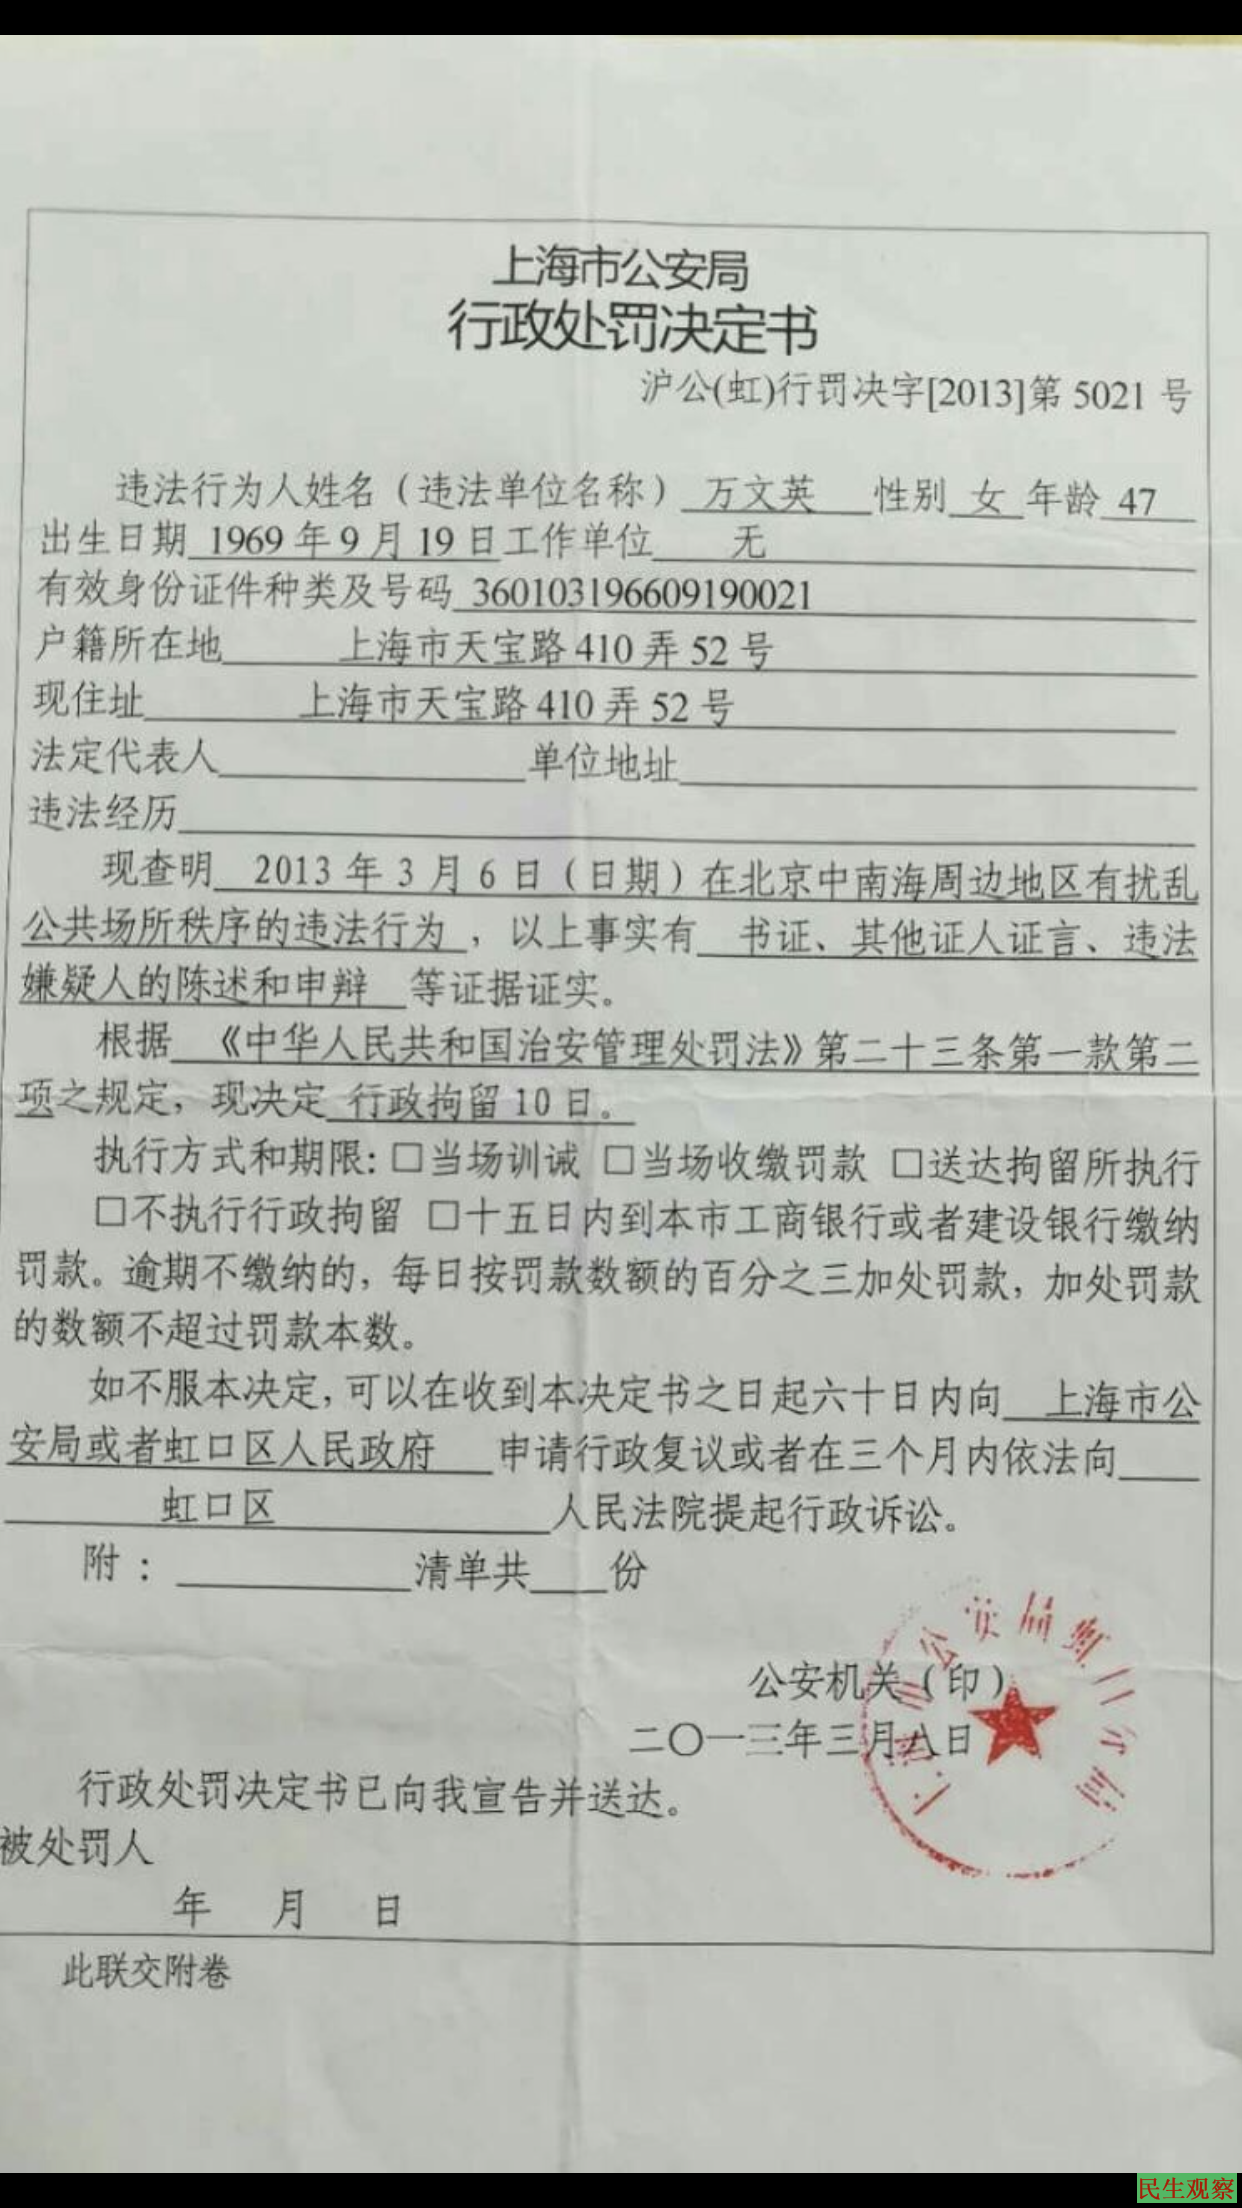 上海市公安局
行政处罚决定书
沪公(虹)行罚决字[2013]第 5021 号
违法行为人姓名（违法单位名称） 万文英 性别 女 年龄 47
出生日期 1969 年 9 月 19 日工作单位 无
有效身份证件种类及号码 360103196609190021
户籍所在地 上海市天宝路 410 弄 52 号
现住址 上海市天宝路 410 弄 52 号
法定代表人 单位地址
违法经历
现查明 2013 年 3 月 6 日（日期）在北京中南海周边地区有扰乱
公共场所秩序的违法行为 ，以上事实有 书证、其他证人证言、违法
嫌疑人的陈述和申辩 等证据证实。
根据 《中华人民共和国治安管理处罚法》第二十三条第一款第二
项之规定，现决定 行政拘留 10 日。
执行方式和期限：□当场训诫 □当场收缴罚款 □送达拘留所执行
□不执行行政拘留 □十五日内到本市工商银行或者建设银行缴纳
罚款。逾期不缴纳的，每日按罚款数额的百分之三加处罚款，加处罚款
的数额不超过罚款本数。
如不服本决定，可以在收到本决定书之日起六十日内向 上海市公
安局或者虹口区人民政府 申请行政复议或者在三个月内依法向
虹口区 人民法院提起行政诉讼。
附： 清单共 份
公安机关（印）
二〇一三年三月八日
行政处罚决定书已向我宣告并送达。
被处罚人
年 月 日
此联交附卷
民生观察